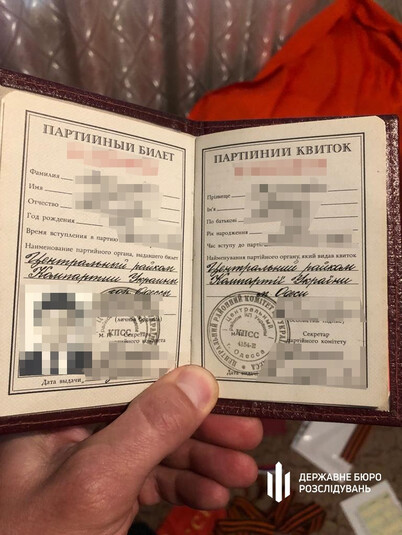 ПАРТИЙНЫЙ БИЛЕТ
Фамилия
Имя
Отчество
Год рождения
Время вступления в партию
Наименование партийного органа, выдавшего билет
Центральный райком
Компартии Украины
гор. Одессы
КПСС
М. П.
Секретарь
Дата выдачи
ПАРТІЙНИЙ КВИТОК
Прізвище
Ім'я
По батькові
Рік народження
Час вступу до партії
Найменування партійного органу, який видав квиток
Центральний райком
Компартії України
м. Одеси
КПСС
г. Одесса
Секретар
партійного комітету
Дата видачі
ДЕРЖАВНЕ БЮРО
РОЗСЛІДУВАНЬ